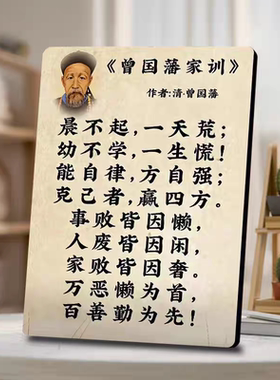 《曾国藩家训》
作者:清·曾国藩
晨不起,一天荒;
幼不学,一生慌!
能自律,方自强;
克己者,赢四方。
事败皆因懒,
人废皆因闲,
家败皆因奢。
万恶懒为首,
百善勤为先!